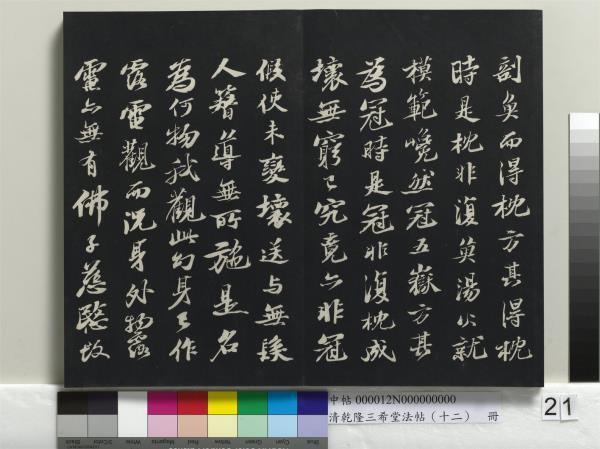 剖魚而得枕方其得枕
時是枕非復魚湯火就
模範巉然冠五嶽方其
為冠時是冠非復枕成
壞無窮已究竟亦非冠
假使未變壞送与無髮
人簪導無所施是名
為何物我觀此幻身已作
露電觀而況身外物露
電亦無有佛子慈愍故
中帖 000012N000000000
清乾隆三希堂法帖（十二） 冊
21
Black
3/Color
White
Magenta
Red
Yellow
Green
Cyan
Blue